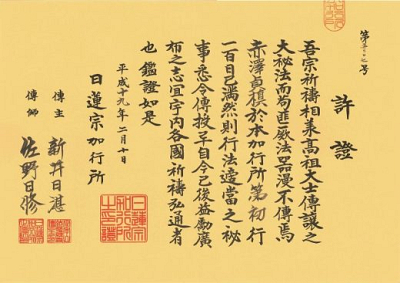 許證
吾宗祈禱相承高祖大士傳讓之
大秘法而苟匪厥法器漫不傳焉
赤澤貞槙於本加行所第初行
一百日已満然則行法適當之秘
事悉令傳授畢自今已後益勵廣
布之志宜宇内各國祈禱弘通者
也鑑證如是
平成十九年二月十日
日蓮宗加行所
傳主 新井日湛
傳師 佐野日